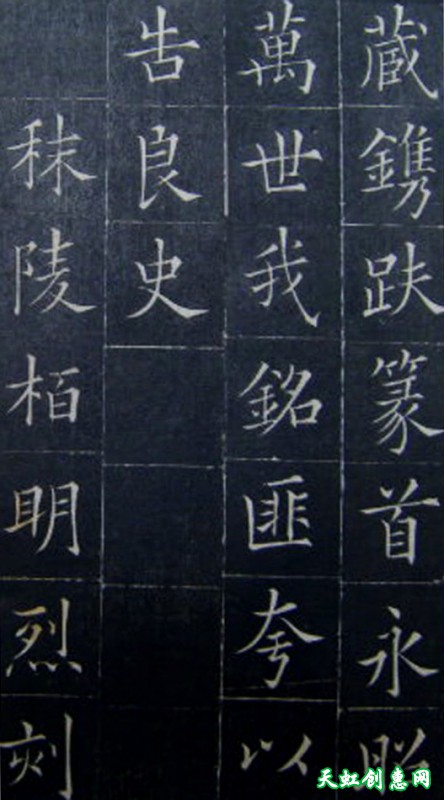 藏鐫趺篆首永昭
萬世我銘匪夸以
告良史
秣陵栢明烈刻
天虹创惠网